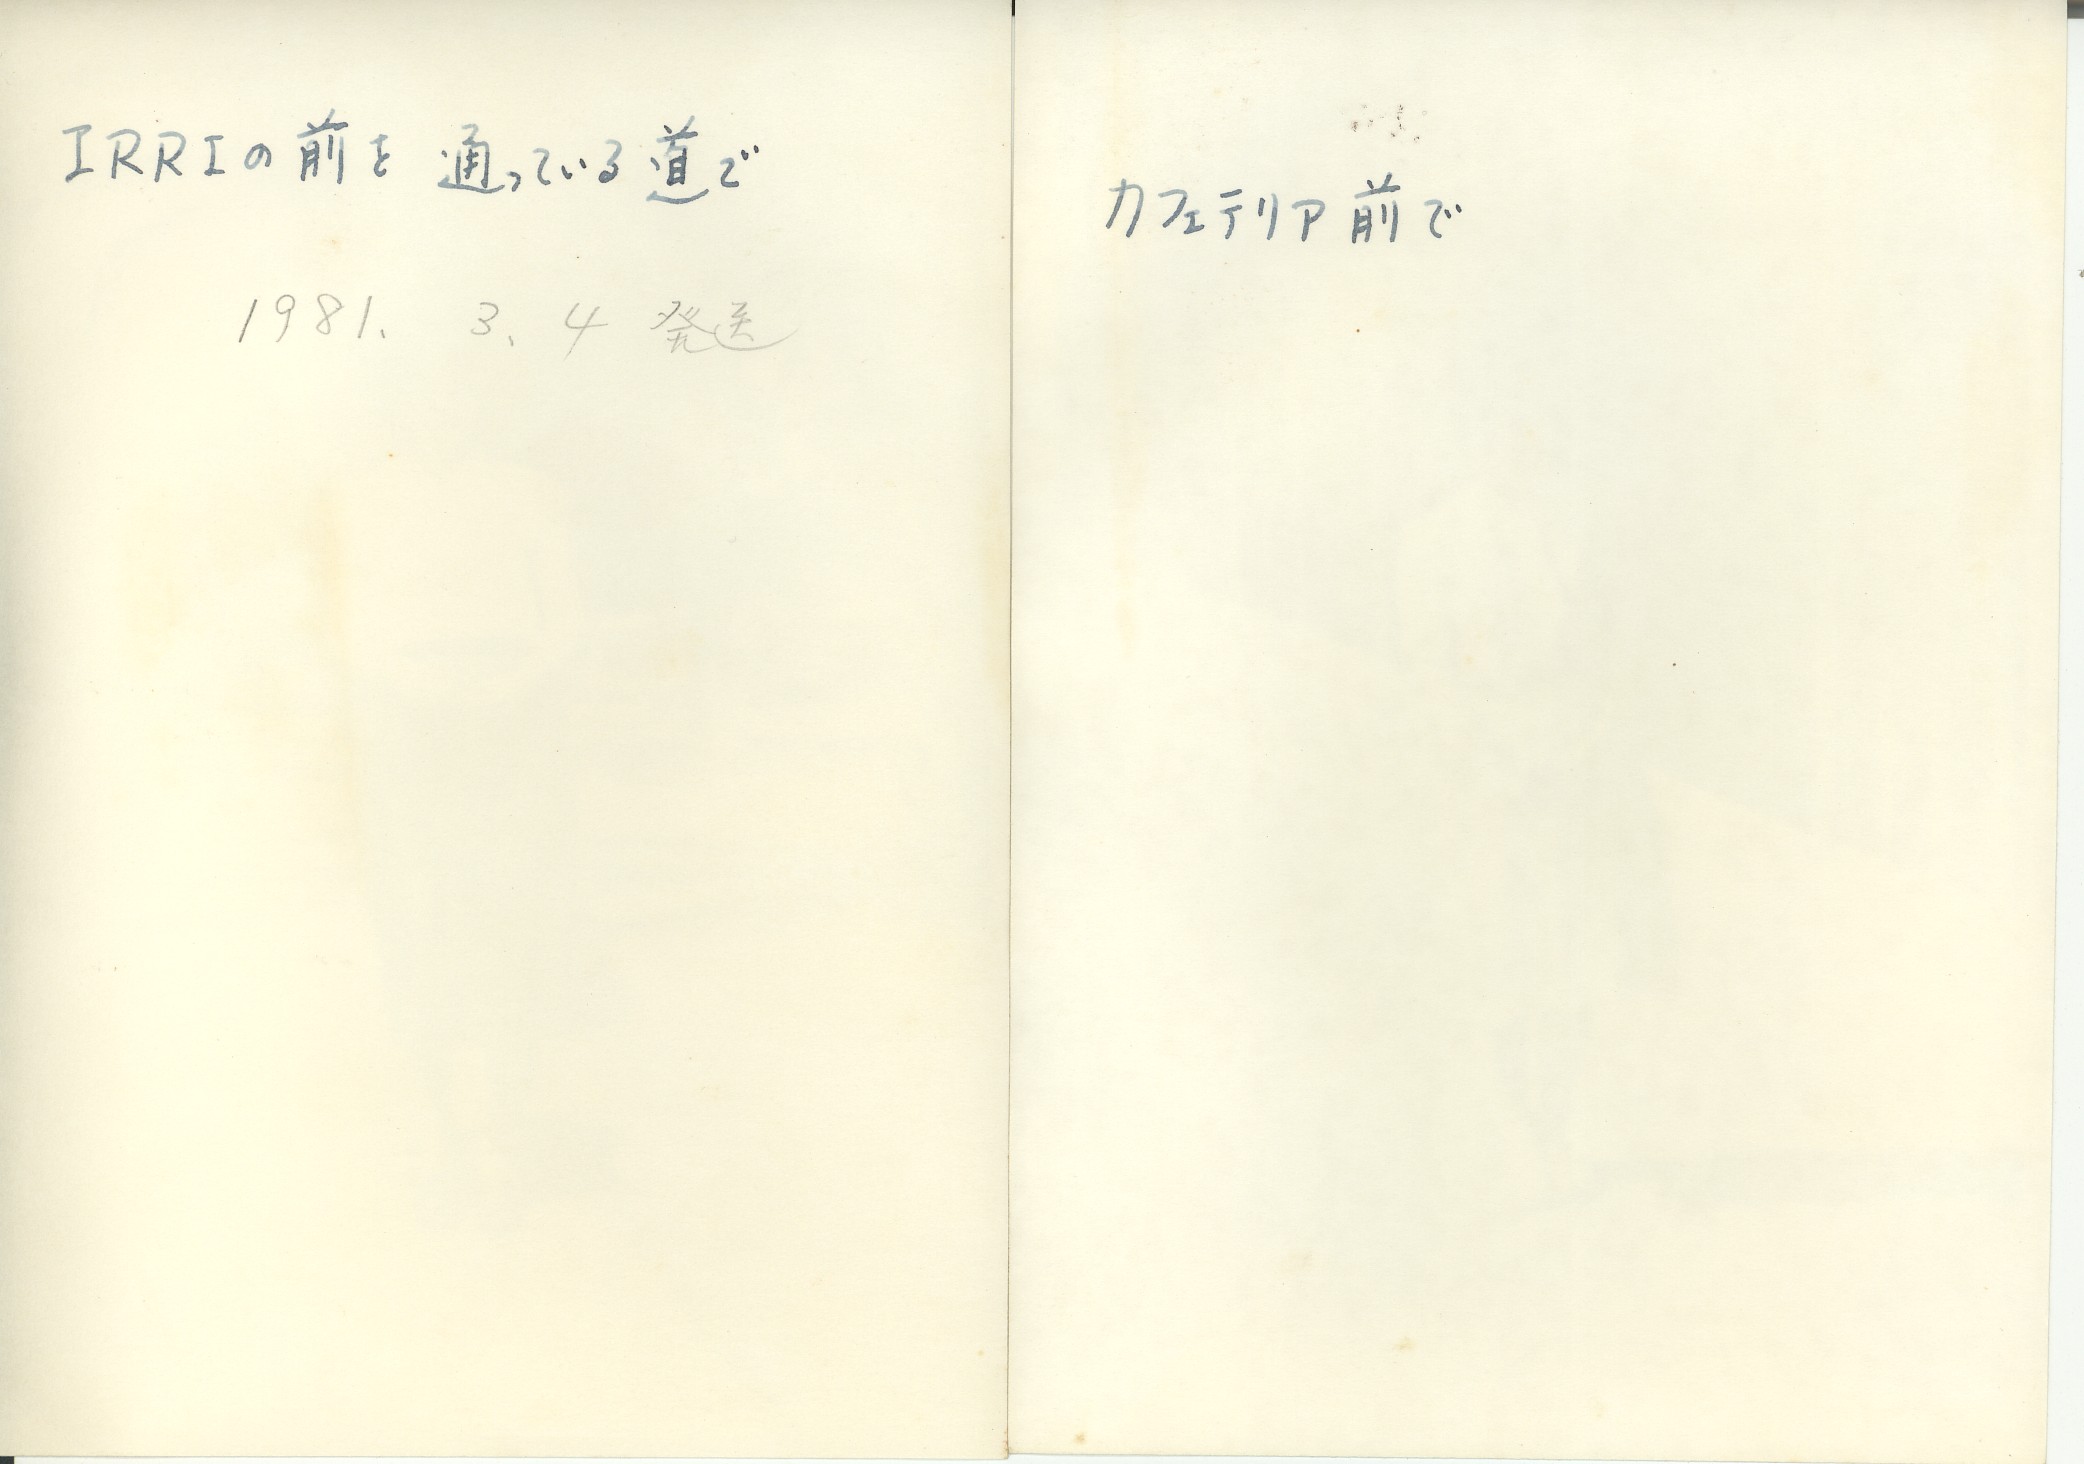 IRRIの前を通っている道で
1981. 3. 4 発送
カフェテリア前で